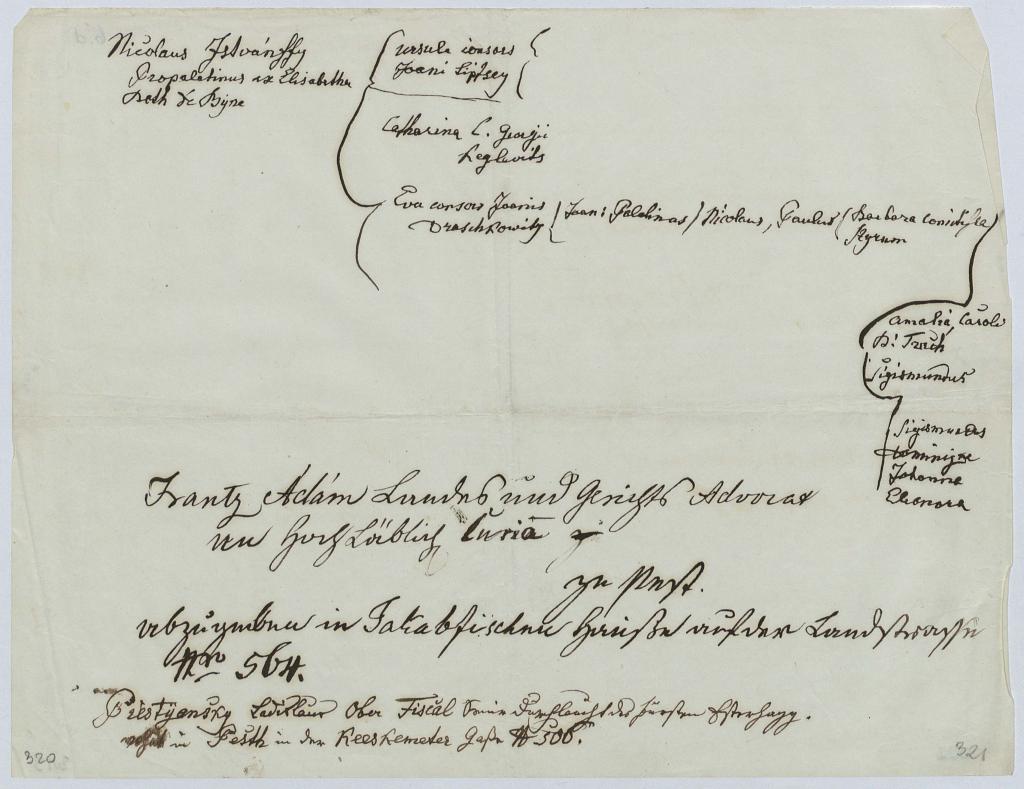 Nicolaus Istvánffy
Propalatinus ex Elisabetha
Both de Bÿne
Ursula consors
Joani Lippsey
Catharina C. Georgii
Keglevits
Eva consors Joanis
Draschkowitz
Joan: Palatinus
Nicolaus, Paulus
Barbara
Styrum
Amalia, Caroli
Sigismundus
Sigismundus
Dominique
Johanna
Eleonora
Frantz Adám Landes und Gerichts Advocat
Hoch Löblich Curiā
zu Pest.
abzugeben in Jakabfischen Hauße auf der Landstrasse
Nro 564.
Piestÿansky Ladislaus Ober Fiscal Seiner Durchlaucht des Fürsten Esterhazy.
wohnt in Pesth in der Kecskemeter Gaße № 506.
320
321